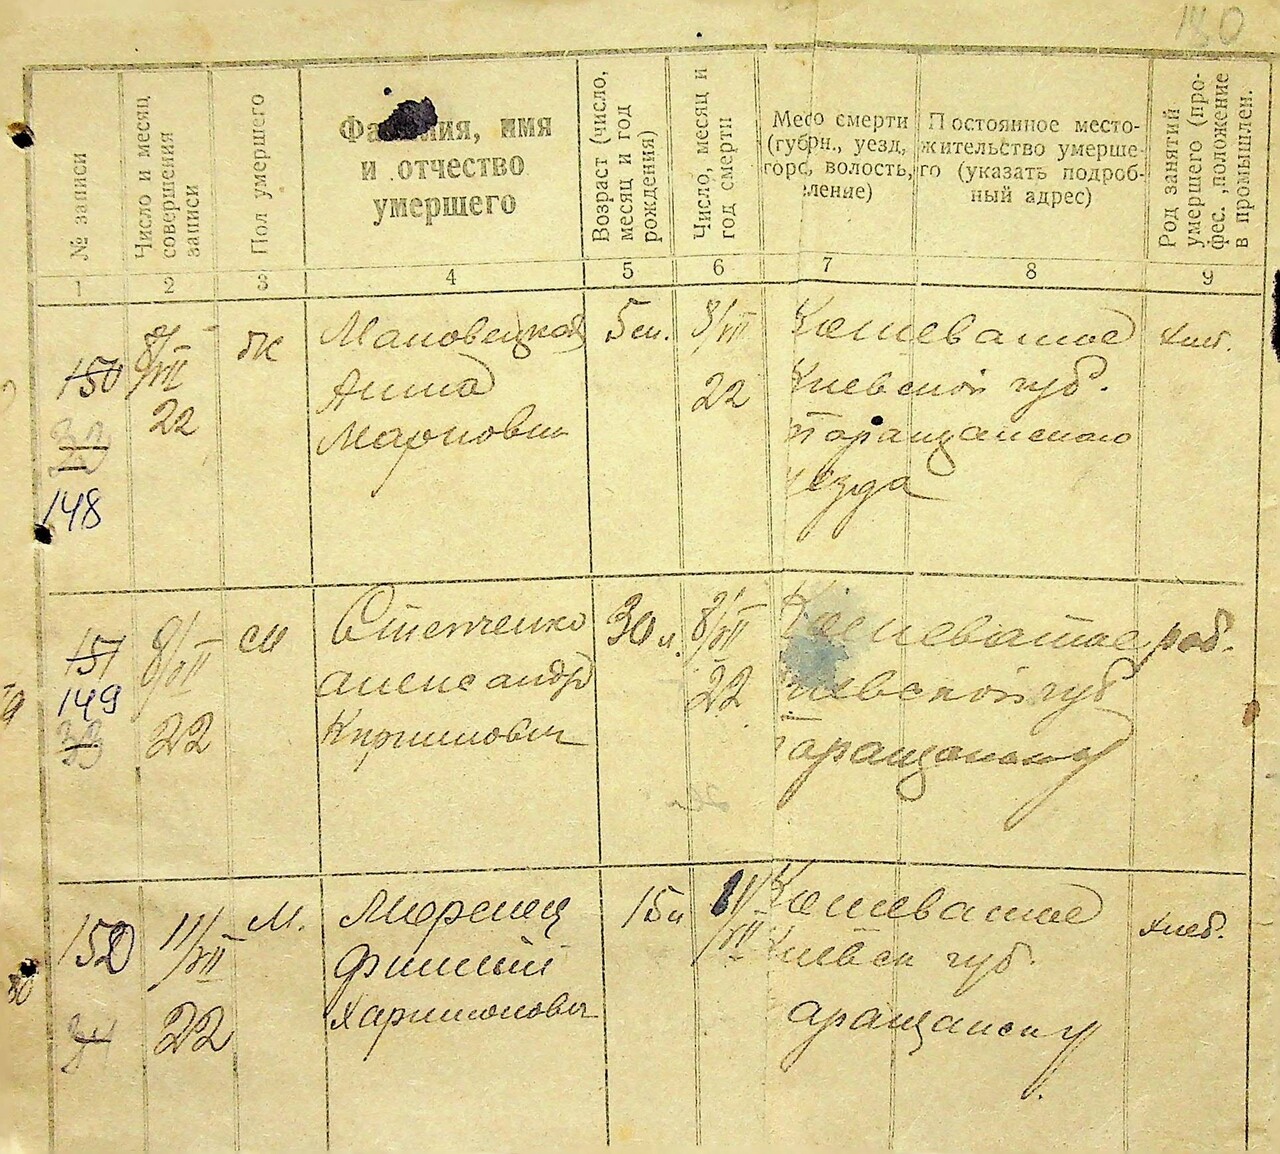 180
№ записи
Число и месяц
совершения
записи
Пол умершего
Фа ия, имя
и отчество
умершего
Возраст (число,
месяц и год
рождения)
Число, месяц и
год смерти
Место смерти
(губрн., уезд,
горо, волость,
ление)
Постоянное место-
жительство умерше-
го (указать подроб-
ный адрес)
Род занятий
умершего (про-
фес., положение
в промышлен.
1 2 3 4 5 6 7 8 9
150
8/VII
22
148
Маповецкая
Анна
Марковн
5 8/VII
22
Кошеватое
Киевской губ.
Таращанского
уезда
хлеб.
151
149
33
8/VII
22
Александр
Кирилович
30 л.
8/VII
22
Кошеватое
Киевской губ
Таращанском у
раб.
152
34
11/VII
22
М.
Филипп
Харитонович
11/VII
Кошеватое
Киевск губ.
аращанск у
хлеб.